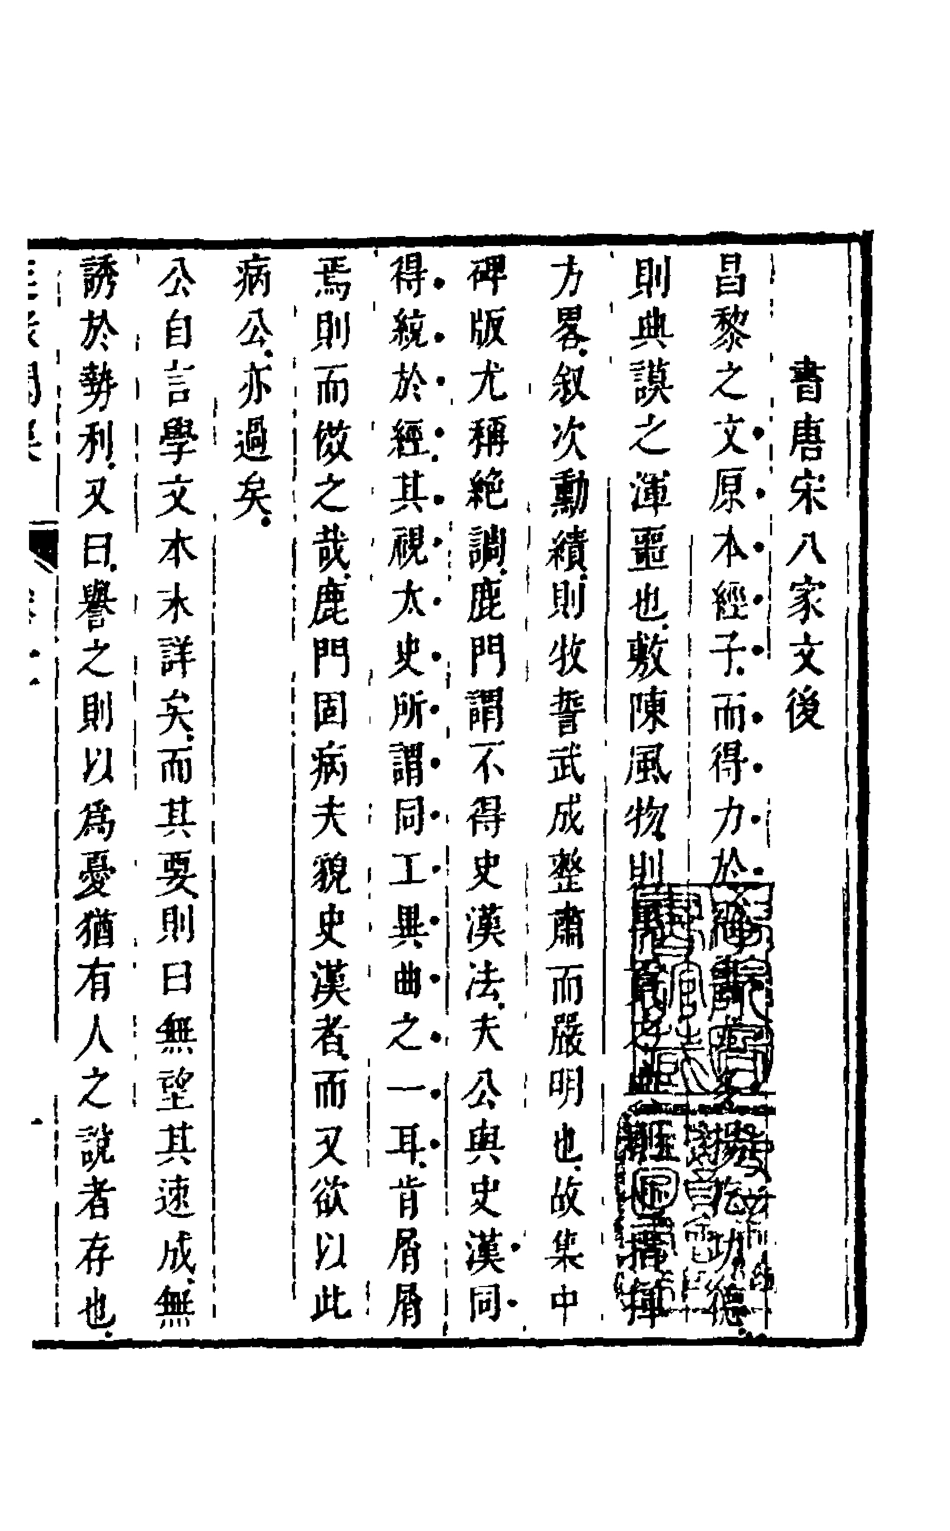 書唐宋八家文後
昌黎之文原本經子而得力於書尤多揚功德
則典謨之渾噩也敷陳風物則禹貢之典也指揮
方畧叙次勳績則牧誓武成整肅而嚴明也故集中
碑版尤稱絕調鹿門謂不得史漢法夫公與史漢同
得統於經其視太史所謂同工異曲之一耳肯屑屑
焉則而倣之哉鹿門固病夫貌史漢者而又欲以此
病公亦過矣
公自言學文本末詳矣而其要則曰無望其速成無
誘於勢利又曰譽之則以爲憂猶有人之說者存也